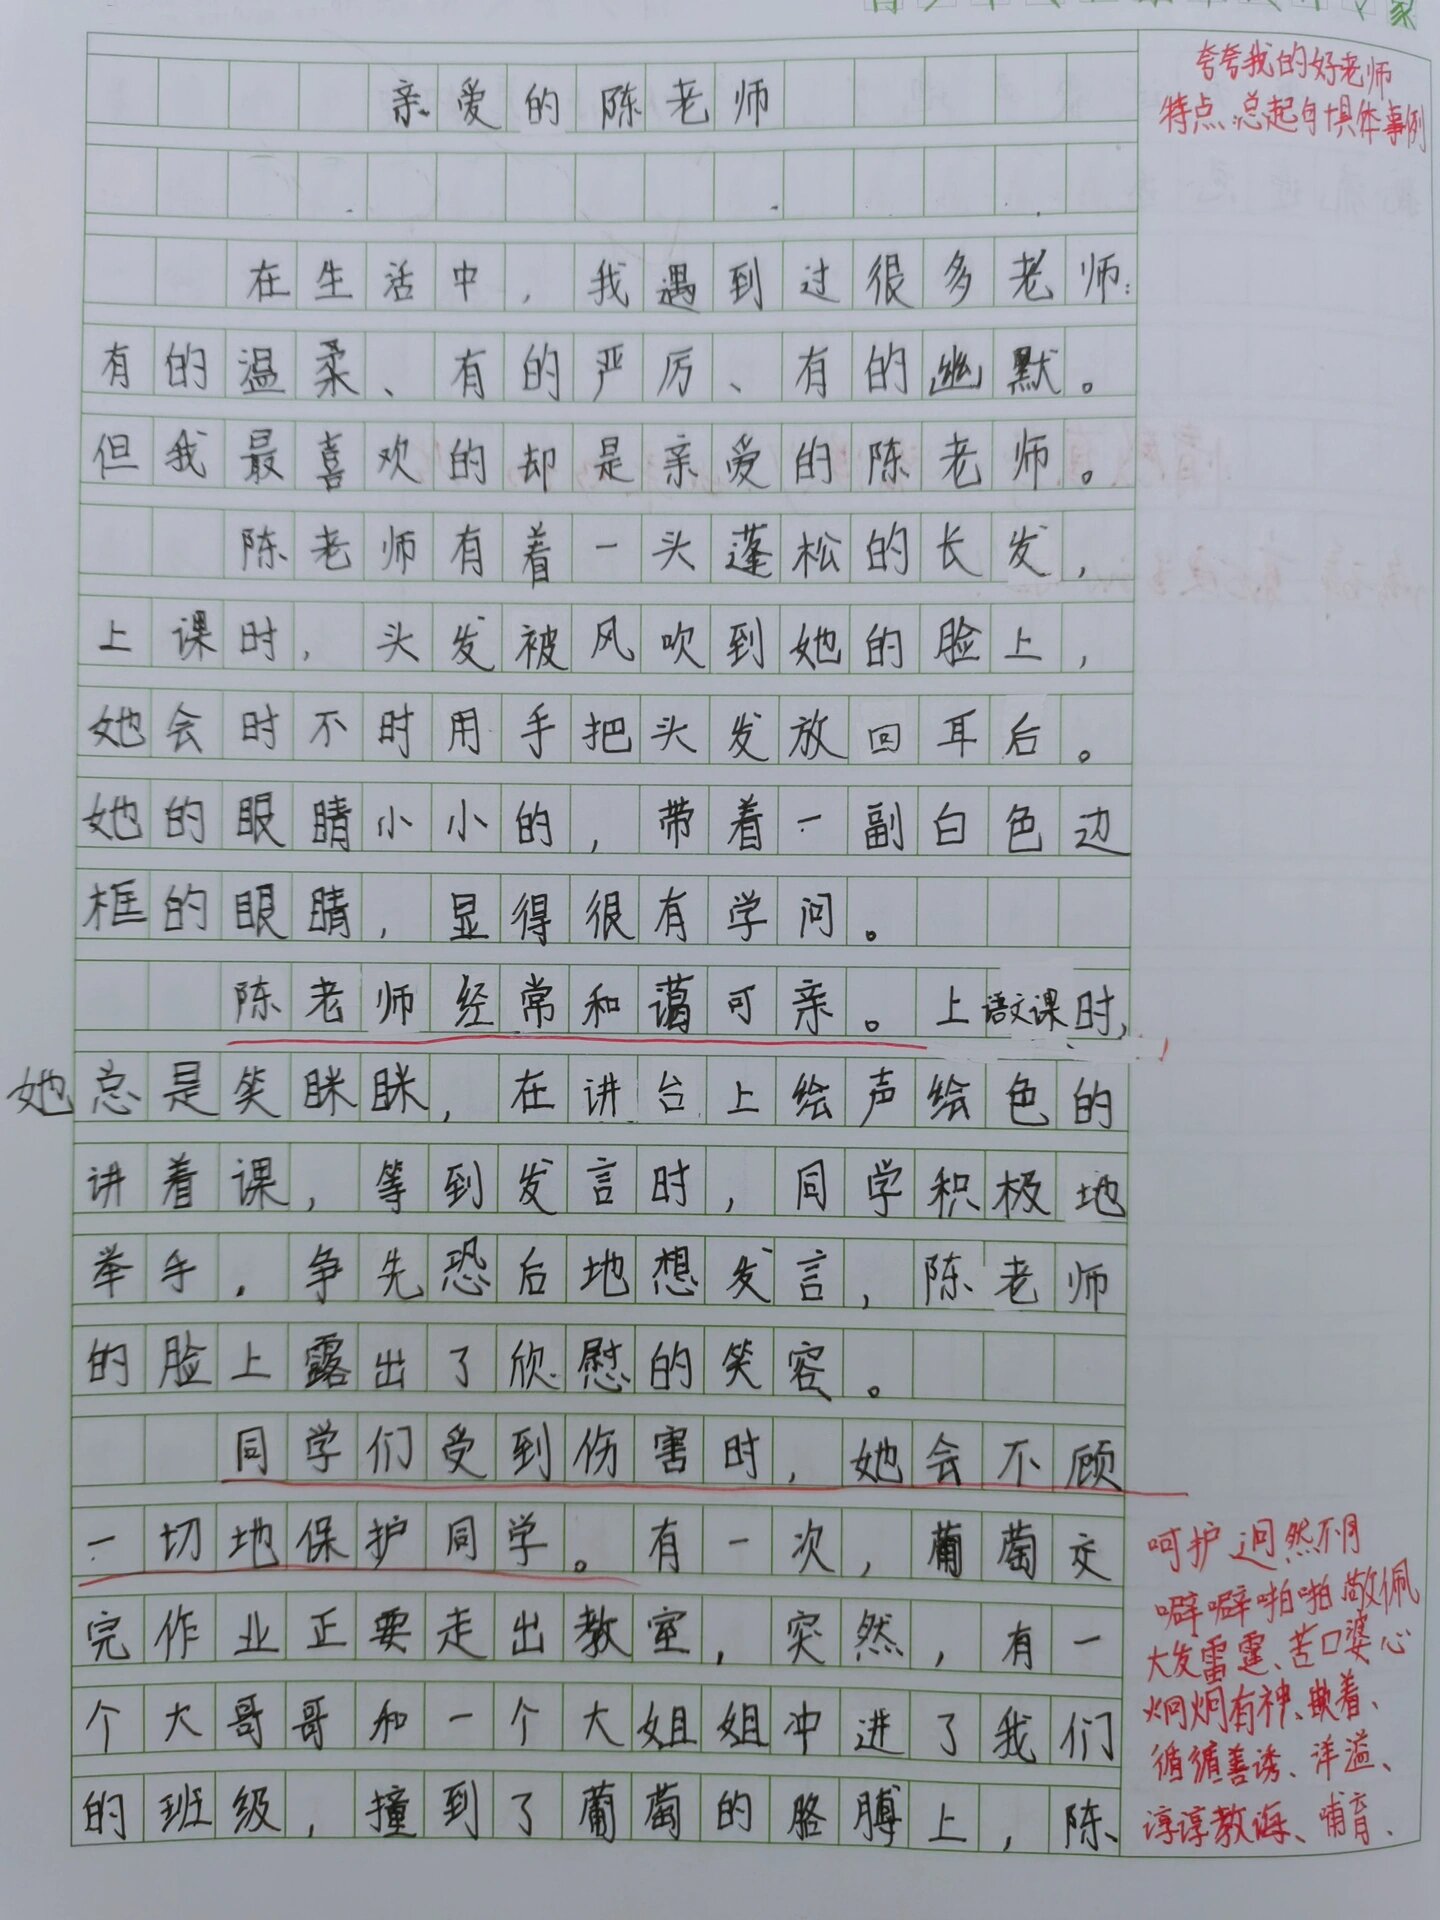 亲爱的陈老师
夸夸我的好老师
特点:总起句+具体事例
在生活中，我遇到过很多老师：
有的温柔、有的严厉、有的幽默。
但我最喜欢的却是亲爱的陈老师。
陈老师有着一头蓬松的长发，
上课时，头发被风吹到她的脸上，
她会时不时用手把头发放回耳后。
她的眼睛小小的，带着一副白色边
框的眼睛，显得很有学问。
陈老师经常和蔼可亲。上语文课时，
她总是笑眯眯，在讲台上绘声绘色的
讲着课，等到发言时，同学积极地
举手，争先恐后地想发言，陈老师
的脸上露出了欣慰的笑容。
同学们受到伤害时，她会不顾
一切地保护同学。有一次，葡萄交
完作业正要走出教室，突然，有一
个大哥哥和一个大姐姐冲进了我们
的班级，撞到了葡萄的胳膊上，陈
呵护 迥然不同
噼噼啪啪 敬佩
大发雷霆、苦口婆心
炯炯有神、
循循善诱、洋溢、
谆谆教诲、哺育、